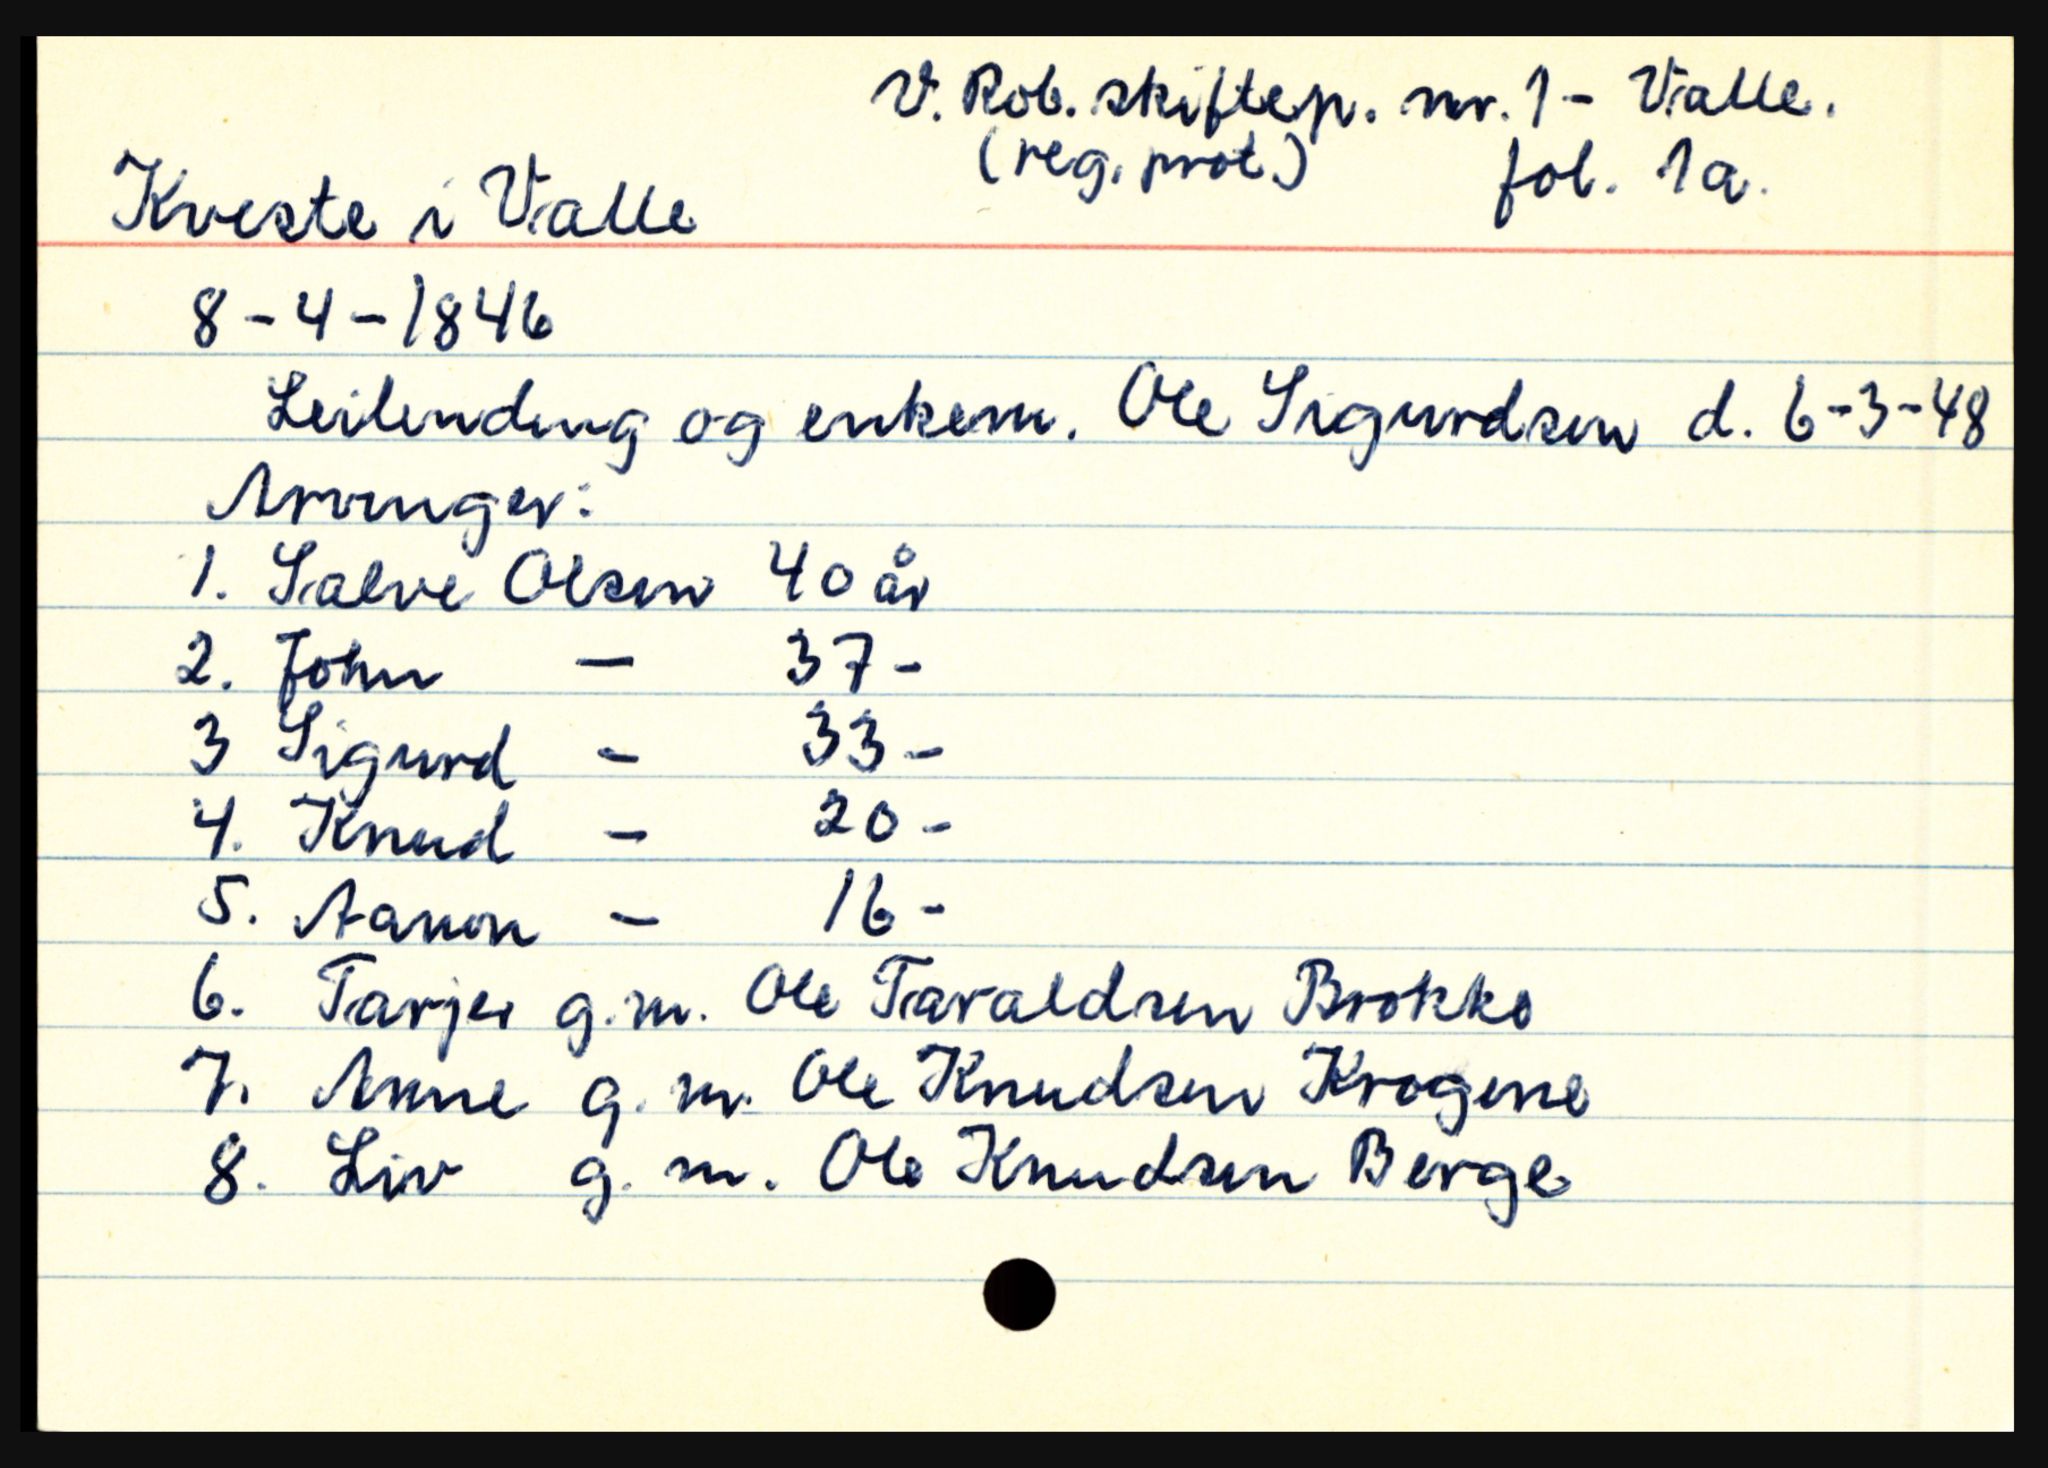 V. Rob. skiftep. nr. 1 - Valle.
(reg. prot.) fol. 1a.
Kveste i Valle
8-4-1846
Leilending og enkem. Ole Sigurdsen d. 6-3-48
Arvinger:
1. Salve Olsen 40 år
2. John — 37 -
3 Sigurd - 33 -
4. Knud - 20 -
5. Aanon - 16 -
6. Tarjei g.m. Ole Taraldsen Brokke
7. Anne g.m. Ole Knudsen Krogene
8. Liv g.m. Ole Knudsen Berge